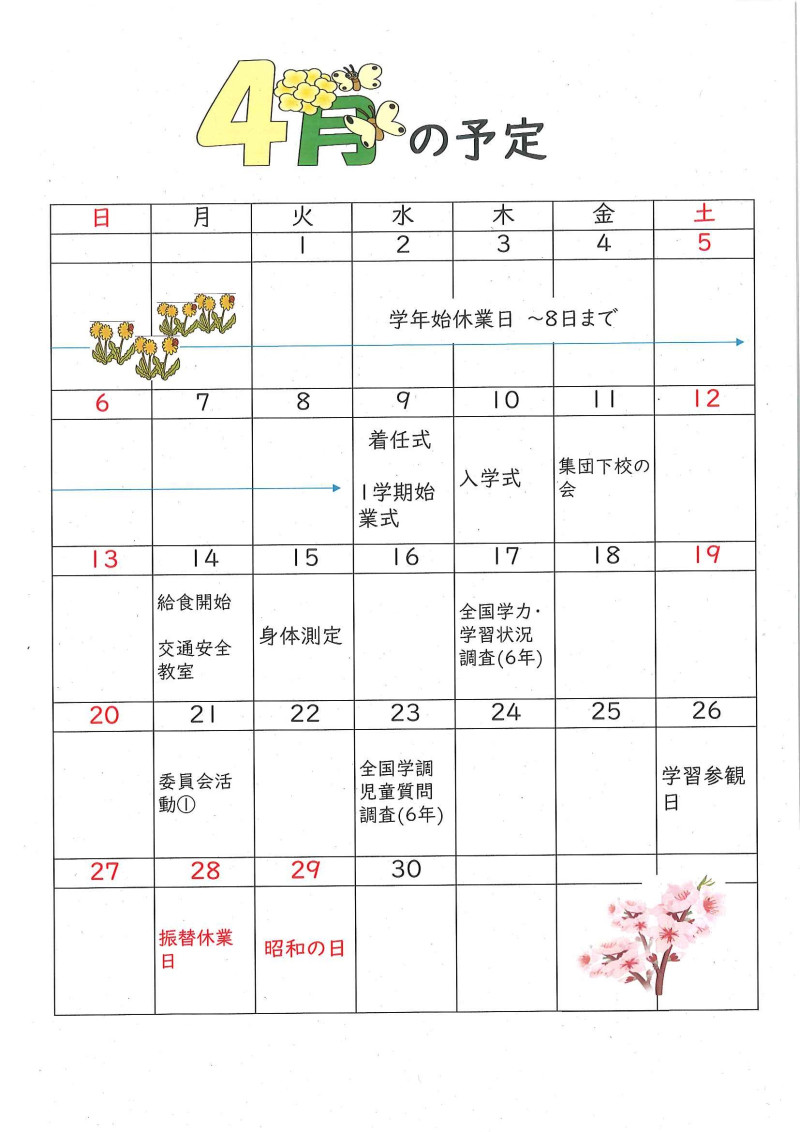 4月の予定
日 月 火 水 木 金 土
1 2 3 4 5
学年始休業日 ~8日まで
6 7 8 9 10 11 12
着任式
1学期始
業式
入学式
集団下校の
会
13 14 15 16 17 18 19
給食開始
交通安全
教室
身体測定
全国学力・
学習状況
調査(6年)
20 21 22 23 24 25 26
委員会活
動①
全国学調
児童質問
調査(6年)
学習参観
日
27 28 29 30
振替休業
日
昭和の日